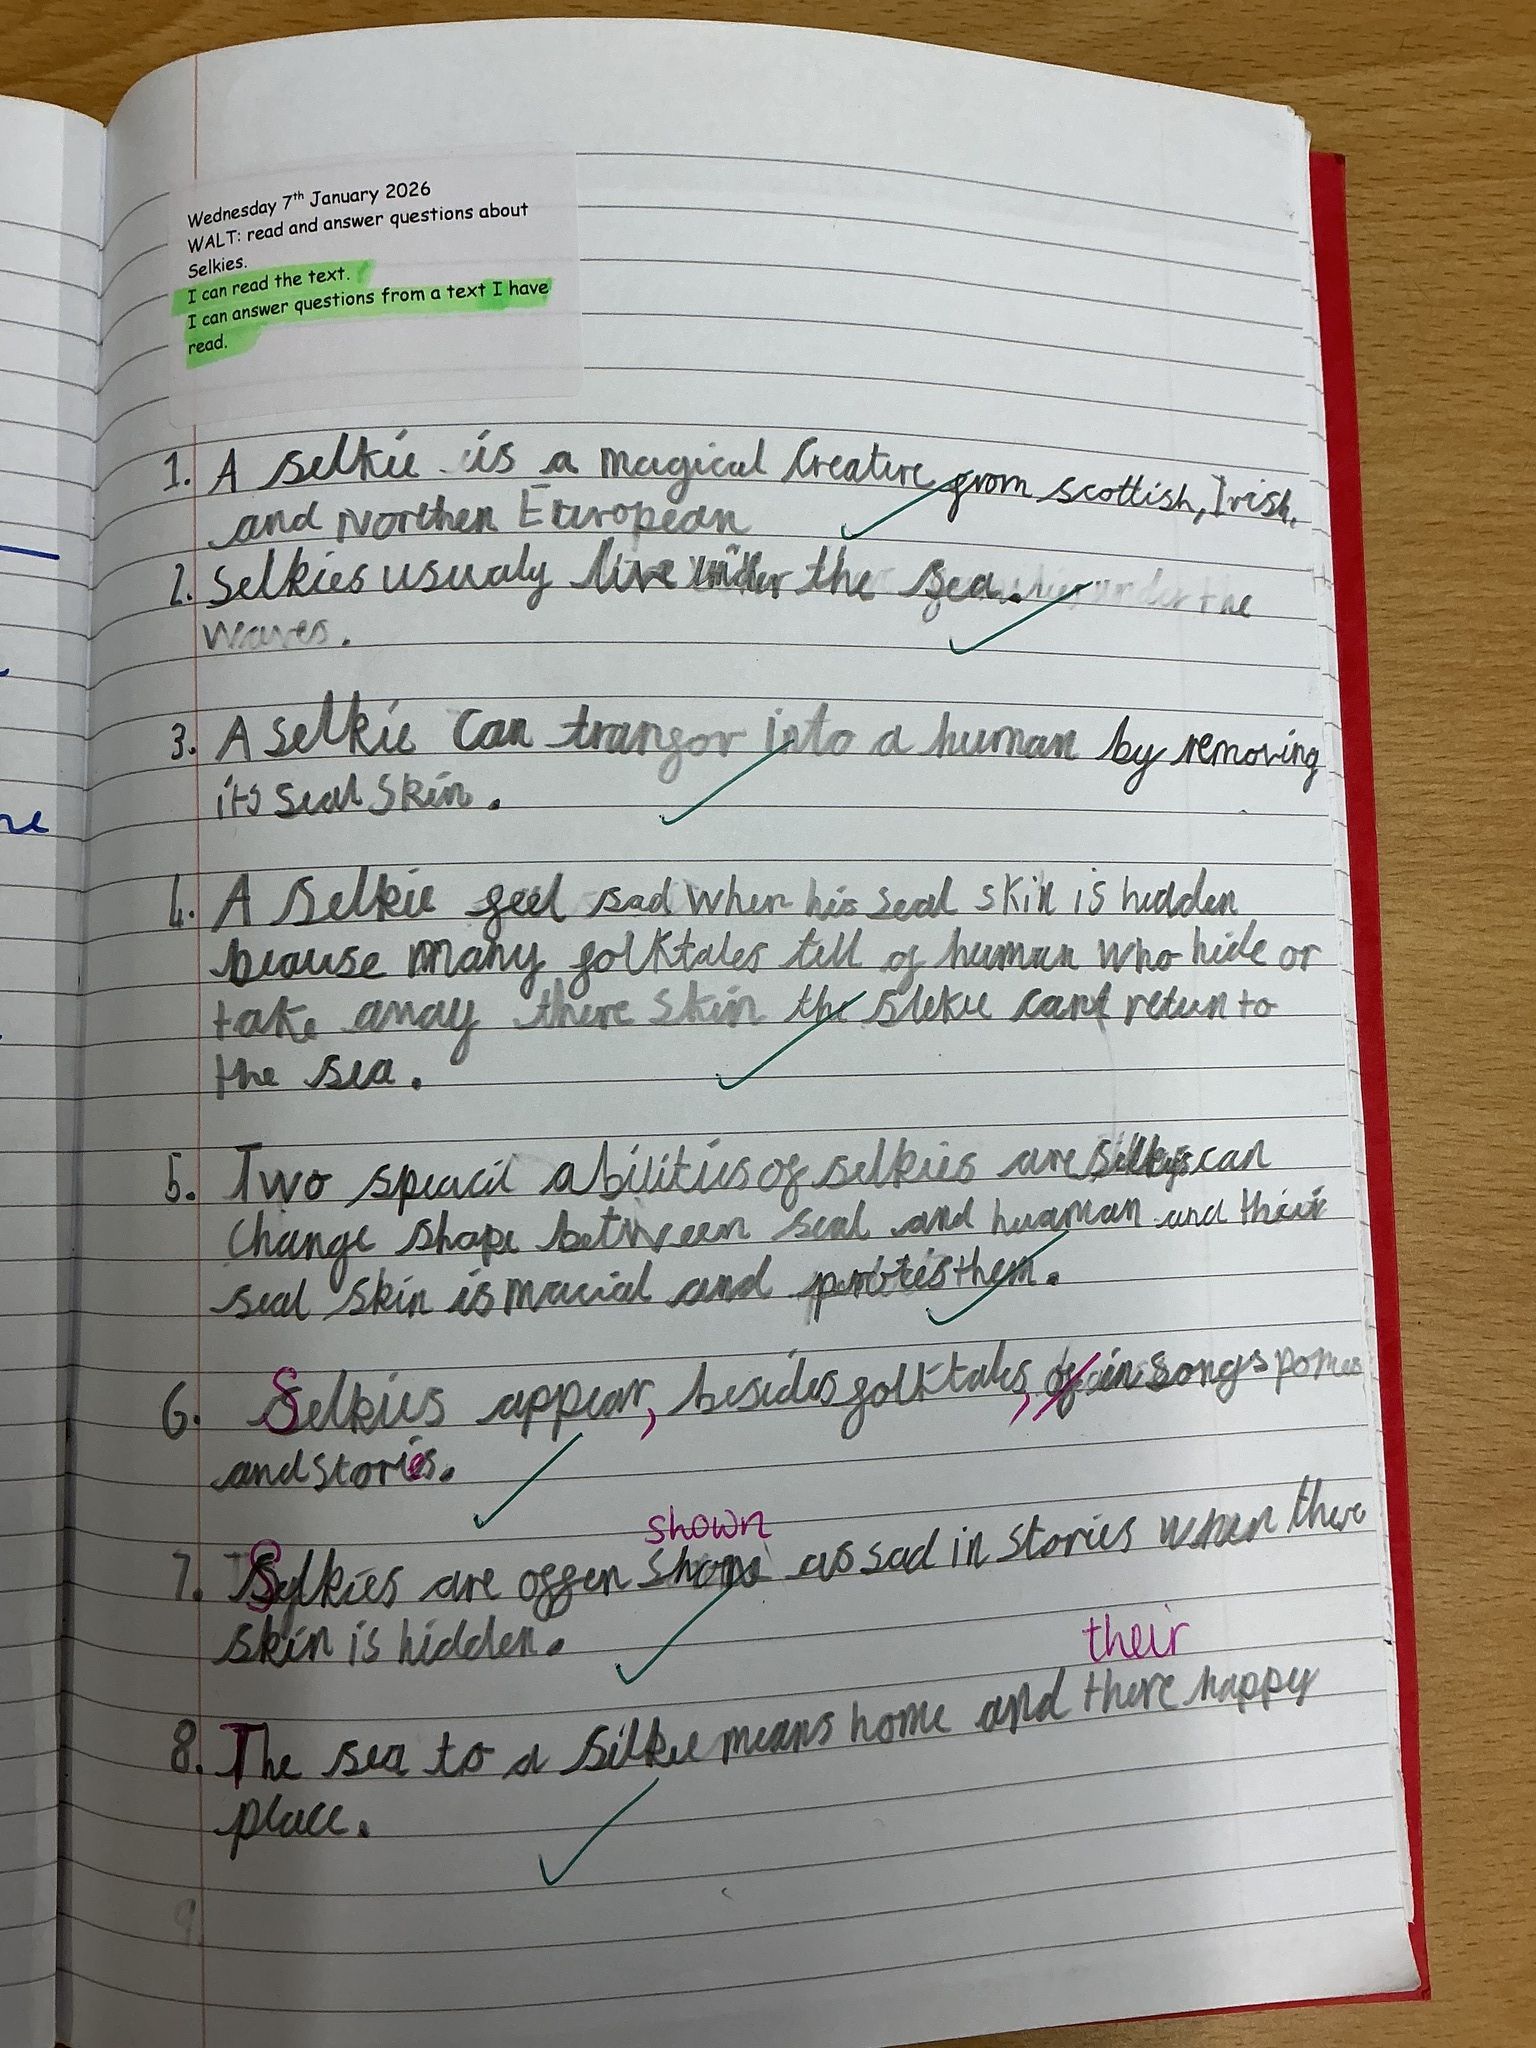 Wednesday 7th January 2026
WALT: read and answer questions about
Selkies.
I can read the text.
I can answer questions from a text I have
read.
1. A selkie is a magical Creature from scottish, Irish,
and Northen European
2. Selkies usualy live under the sea. under the
waves.
3. A selkie can transfor into a human by removing
its seal skin.
4. A selkie feel sad when his seal skin is hidden
beause many folktales tell of human who hide or
take away there skin the slekie cant return to
the sea.
5. Two speacil abilities of selkies are can
change shape between seal and huaman and their
seal skin is macial and them.
6. Selkies appear, besides folktales, of in songs pomes
and stories.
shown
7. Selkies are offen as sad in stories when there
skin is hidden.
their
8. The sea to a silkie means home and there happy
place.
9.